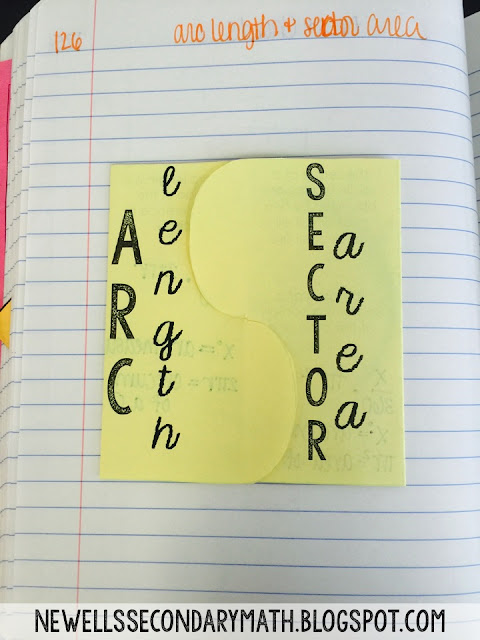 126
arc length & sector area
ARC
length
SECTOR
area
NEWELLSSECONDARYMATH.BLOGSPOT.COM